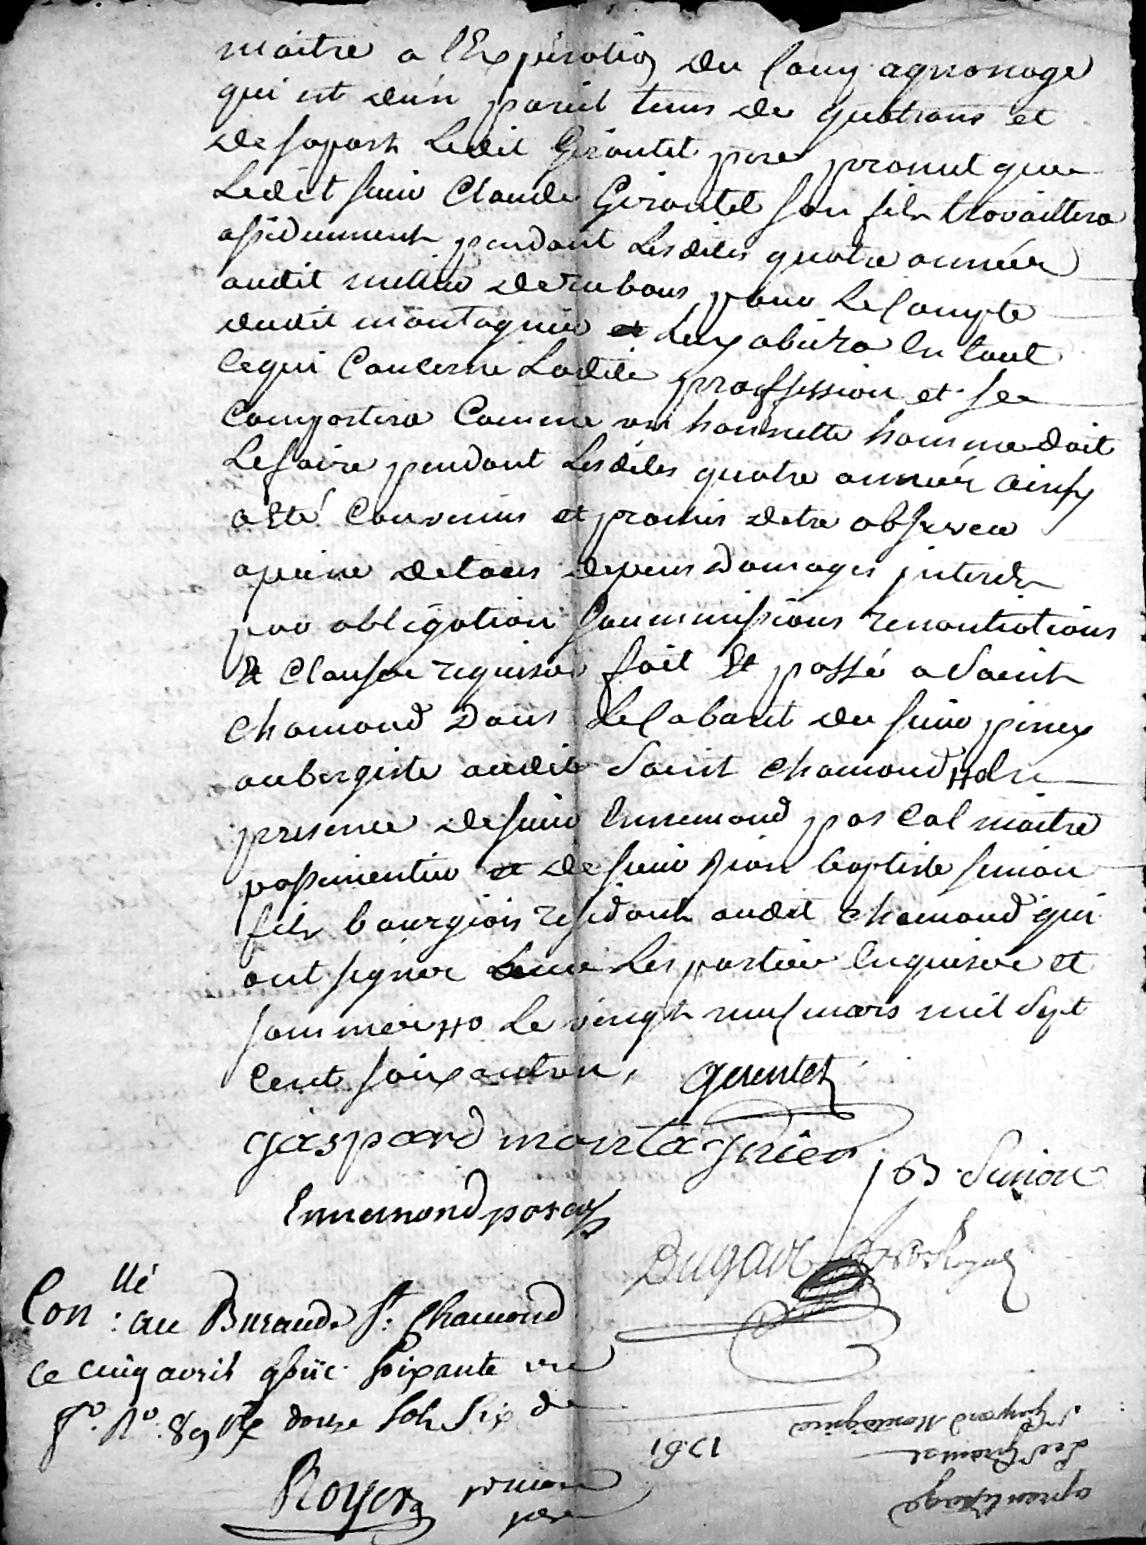 maitre a l'Expiration du Compagnonage
qui est d'un pareil tems de quatrans et
de sa part Ledit Girontet pere promet que
Ledit sieur Claude Girontet son fils travaillera
assiduement pendant Lesdites quatre année
audit metier de rubans pour Le Compte
dudit montagnier et Luy obeira En tout
Cequi Concerne Ladite proffession et se
Comportera Comme un honnette homme doit
Le faire pendant Lesdites quatre année ainsy
a Eté Convenus et promis detre observer
apeine de tous depens Domages interets
par obligation soummissions renontiations
Et Clause requise fait Et passé a Saint
Chamond Dans Le Cabaret du sieur piney
aubergiste audit Saint Chamond En
presence de sieur Ennemond pascal maitre
passementier et de sieur Jean baptiste simon
fils bourgeois residant audit chamond qui
ont signer avec Les partie Enquise et
sommer Le vingt neuf mars mil sept
Cent soixanteun, gerentet
gaspard montagnier
J B Simon
Ennemond pascal
Dugait Nore Royal
Con.llé au Bureau de St. Chamond
ce cinq avril soixante un
fo. No. 89 Re douze sols six d
Royer simon
pere
aprentissage
Led Girontet
Sr Gaspard Montagnier
1761